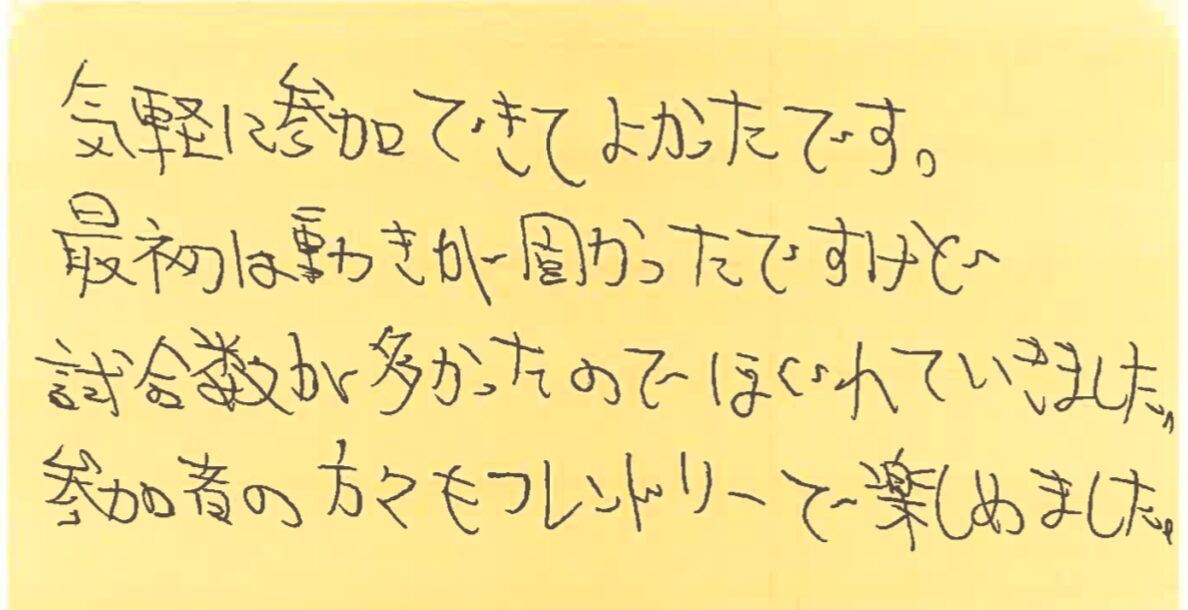 気軽に参加できてよかったです。
最初は動きが固かったですけど
試合数が多かったのでほぐれていきました。
参加者の方々もフレンドリーで楽しめました。